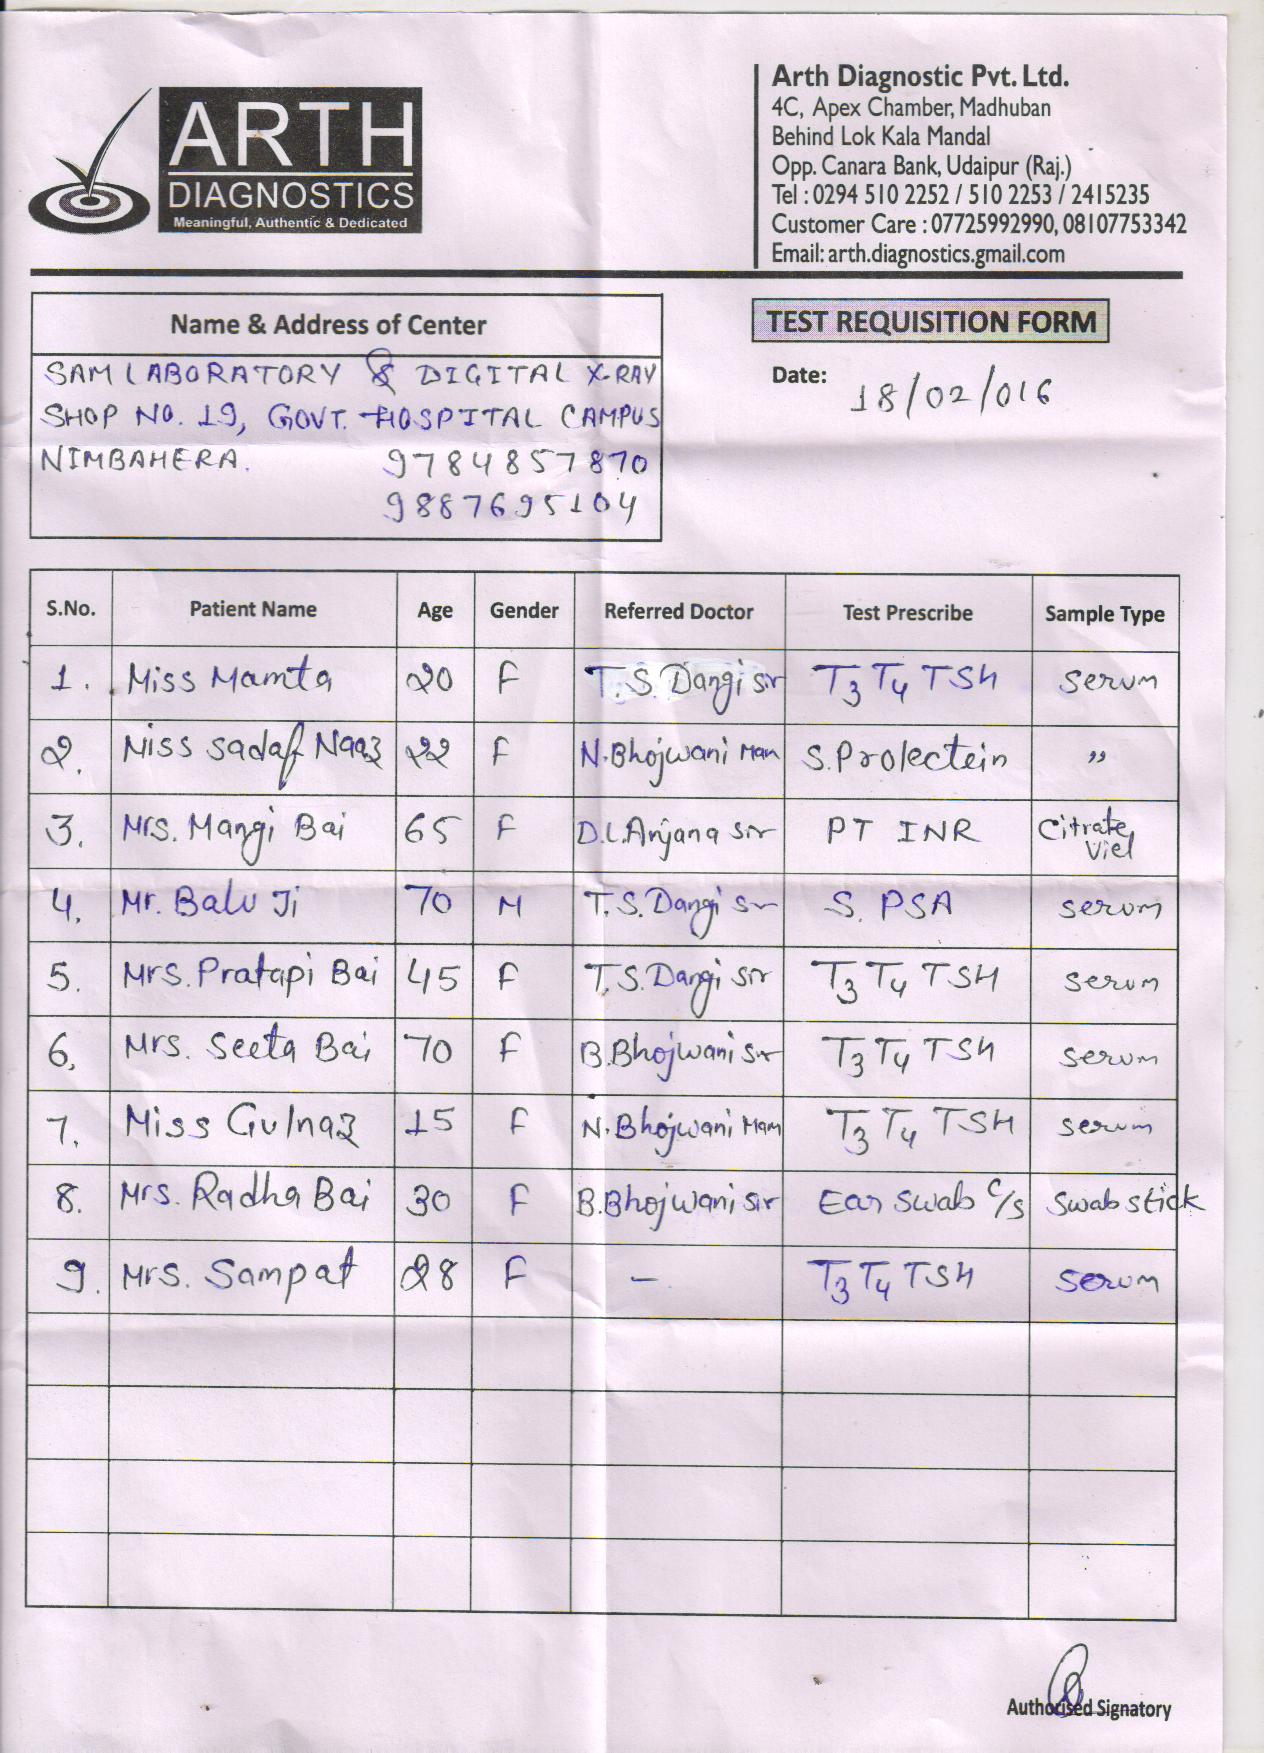 ARTH
DIAGNOSTICS
Meaningful, Authentic & Dedicated
Arth Diagnostic Pvt. Ltd.
4C, Apex Chamber, Madhuban
Behind Lok Kala Mandal
Opp. Canara Bank, Udaipur (Raj.)
Tel : 0294 510 2252 / 510 2253 / 2415235
Customer Care : 07725992990, 08107753342
Email: arth.diagnostics.gmail.com
Name & Address of Center
SAM LABORATORY & DIGITAL X-RAY
SHOP NO. 19, GOVT. HOSPITAL CAMPUS
NIMBAHERA. 9784857870
9887695104
TEST REQUISITION FORM
Date: 18/02/016
S.No. Patient Name Age Gender Referred Doctor Test Prescribe Sample Type
1. Miss Mamta 20 F T.S. Dangi sir T3 T4 TSH serum
2. Miss Sadaf Naaz 22 F N.Bhojwani Mam S.Prolectein "
3. Mrs. Mangi Bai 65 F D.L.Anjana sir PT INR Citrate Viel
4. Mr. Balu Ji 70 M T.S. Dangi sir S. PSA serum
5. Mrs. Pratapi Bai 45 F T.S. Dangi sir T3 T4 TSH serum
6. Mrs. Seeta Bai 70 F B.Bhojwani sir T3 T4 TSH serum
7. Miss Gulnaz 15 F N.Bhojwani Mam T3 T4 TSH serum
8. Mrs. Radha Bai 30 F B.Bhojwani sir Ear swab c/s Swab stick
9. Mrs. Sampat 28 F – T3 T4 TSH serum
Authorised Signatory